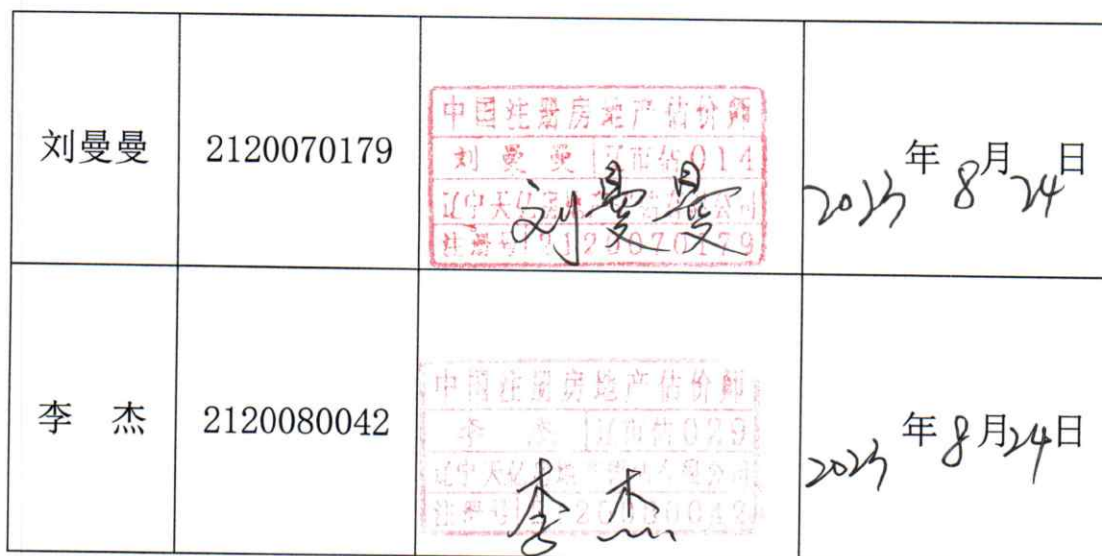 刘曼曼
2120070179
中国注册房地产估价师
刘曼曼
014
辽宁天亿
注册号2120070179
刘曼曼
2023年8月24日
李 杰
2120080042
中国注册房地产估价师
李 杰
029
辽宁天亿
注册号2120080042
李杰
2023年8月24日